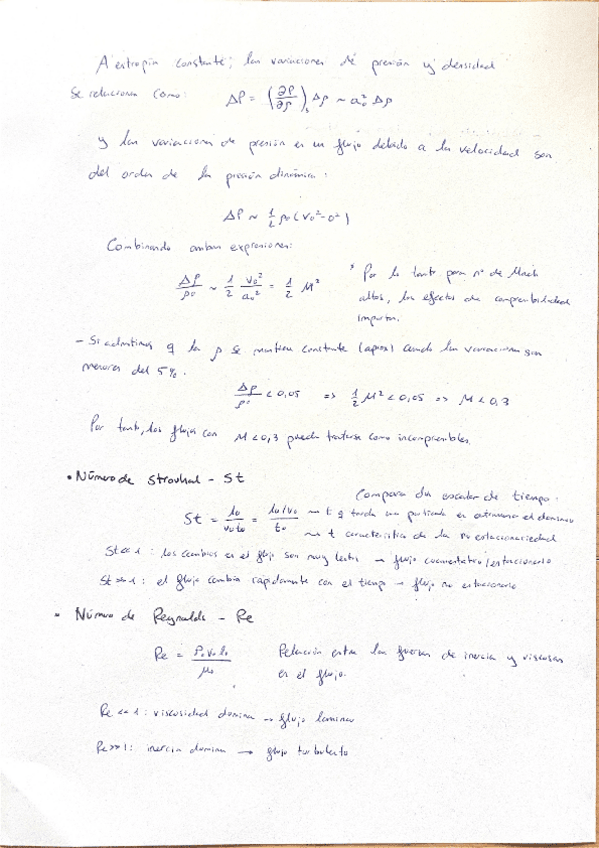 A entropía constante, las variaciones de presión y densidad
se relacionan como: ΔP = (∂P/∂ρ)_s Δρ ~ a₀² Δρ
y las variaciones de presión en un flujo debido a la velocidad son
del orden de la presión dinámica:
ΔP ~ 1/2 ρ₀ (v₀² - 0²)
Combinando ambas expresiones:
Δρ/ρ₀ ~ 1/2 v₀²/a₀² = 1/2 M²
* Por lo tanto, para nº de Mach
altos, los efectos de compresibilidad
importan.
- Si admitimos q la ρ se mantiene constante (aprox) cuando las variaciones son
menores del 5%.
Δρ/ρ₀ < 0,05 => 1/2 M² < 0,05 => M < 0,3
Por tanto, los flujos con M < 0,3 pueden tratarse como incompresibles.
• Número de Strouhal - St
Compara dos escalas de tiempo.
St = l₀/(v₀t₀) = (l₀/v₀)/t₀
→ t q tarda una partícula en atravesar el dominio
→ t característico de la no estacionariedad
St << 1: los cambios en el flujo son muy lentos → flujo estacionario
St >> 1: el flujo cambia rápidamente con el tiempo → flujo no estacionario
• Número de Reynolds - Re
Re = ρ₀v₀l₀/μ₀
Relación entre las fuerzas de inercia y viscosas
en el flujo.
Re << 1: viscosidad domina → flujo laminar
Re >> 1: inercia domina → flujo turbulento